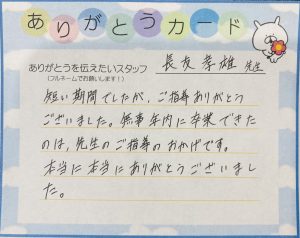 ありがとうカード
ありがとうを伝えたいスタッフ
(フルネームでお願いします!)
長友孝雄 先生
短い期間でしたが、ご指導ありがとう
ございました。無事年内に卒業できた
のは、先生のご指導のおかげです。
本当に本当にありがとうございまし
た。